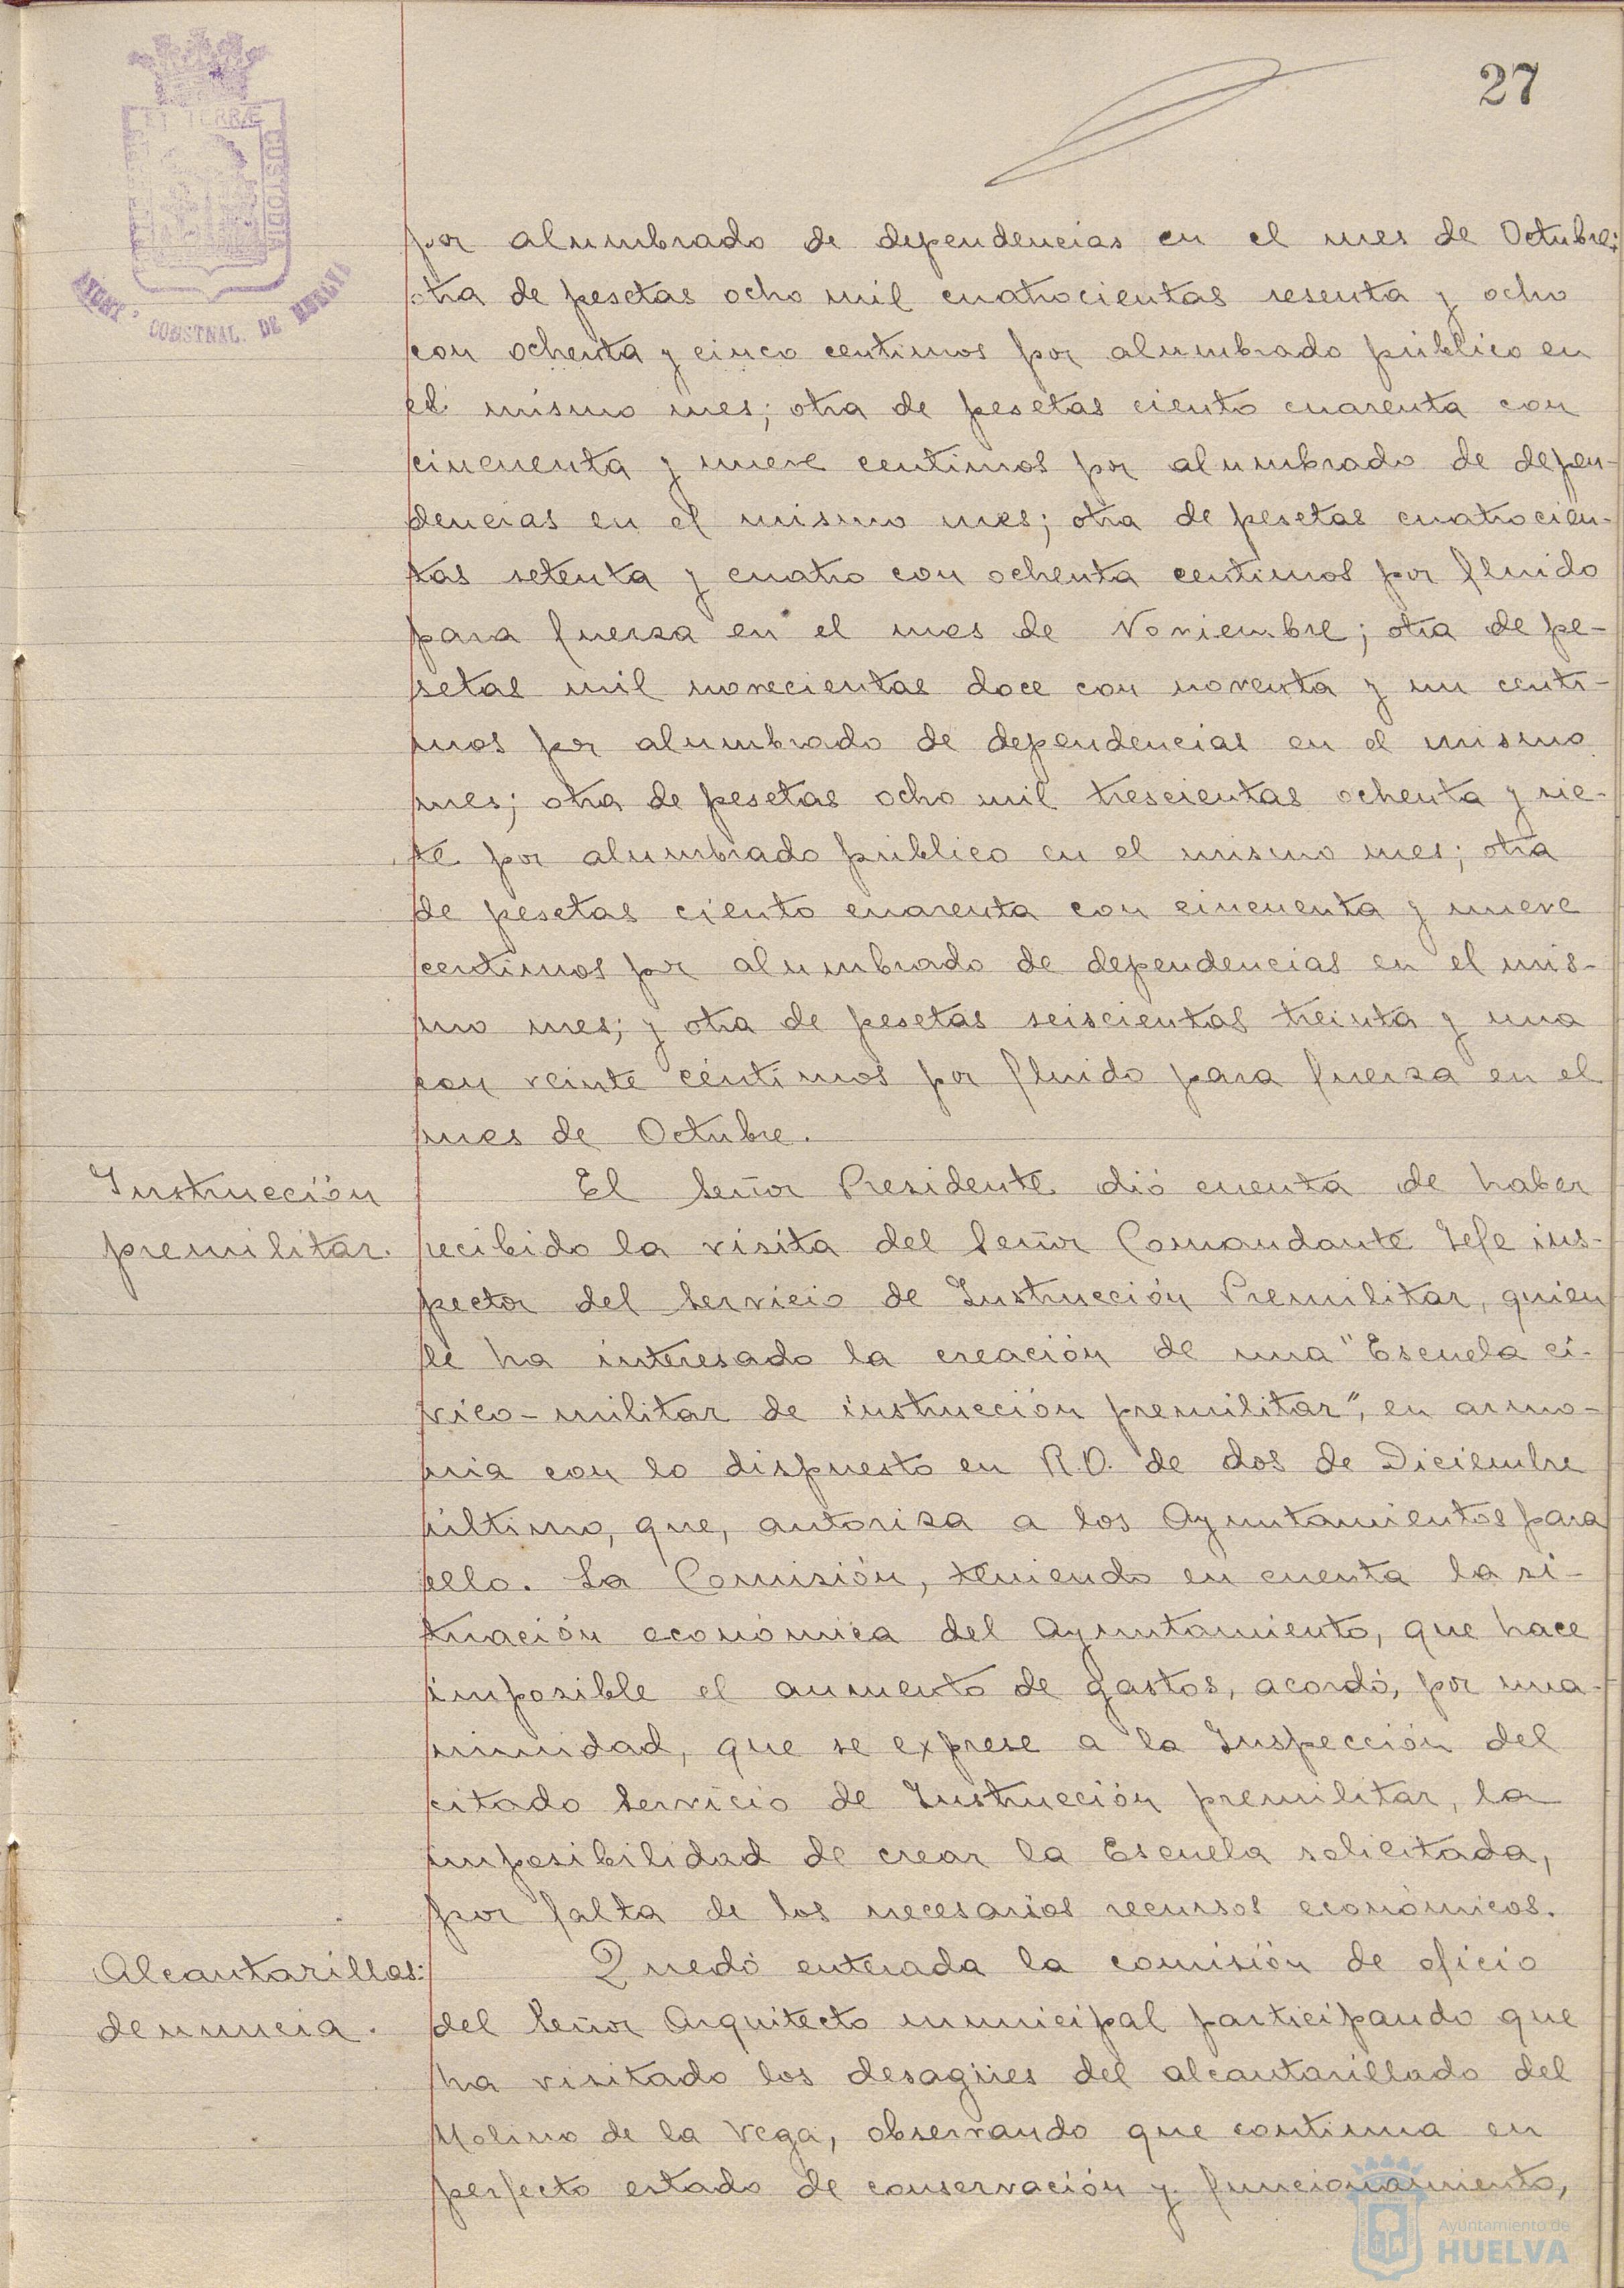 27
ET TERRÆ
CUSTODIA
AYUNT. CONSTNAL. DE HUELVA
por alumbrado de dependencias en el mes de Octubre;
otra de pesetas ocho mil cuatrocientas sesenta y ocho
con ochenta y cinco centimos por alumbrado público en
el mismo mes; otra de pesetas ciento cuarenta con
cincuenta y nueve centimos por alumbrado de depen-
dencias en el mismo mes; otra de pesetas cuatrocien-
tas setenta y cuatro con ochenta centimos por fluido
para fuerza en el mes de Noviembre; otra de pe-
setas mil novecientas doce con noventa y un centi-
mos por alumbrado de dependencias en el mismo
mes; otra de pesetas ocho mil trescientas ochenta y sie-
te por alumbrado público en el mismo mes; otra
de pesetas ciento cuarenta con cincuenta y nueve
centimos por alumbrado de dependencias en el mis-
mo mes; y otra de pesetas seiscientas treinta y una
con veinte céntimos por fluido para fuerza en el
mes de Octubre.
Instrucción
premilitar.
El Señor Presidente dió cuenta de haber
recibido la visita del Señor Comandante Jefe ins-
pector del Servicio de Instrucción Premilitar, quien
le ha interesado la creación de una "Escuela cí-
vico-militar de instrucción premilitar", en armo-
nia con lo dispuesto en R.O. de dos de Diciembre
último, que, autoriza a los Ayuntamientos para
ello. La Comisión, teniendo en cuenta la si-
tuación económica del Ayuntamiento, que hace
imposible el aumento de gastos, acordó, por una-
nimidad, que se exprese a la Inspección del
citado Servicio de Instrucción premilitar, la
imposibilidad de crear la Escuela solicitada,
por falta de los necesarios recursos económicos.
Alcantarillas:
denuncia.
Quedó enterada la comisión de oficio
del Señor Arquitecto municipal participando que
ha visitado los desagües del alcantarillado del
Molino de la Vega, observando que continua en
perfecto estado de conservación y funcionamiento,
Ayuntamiento de
HUELVA